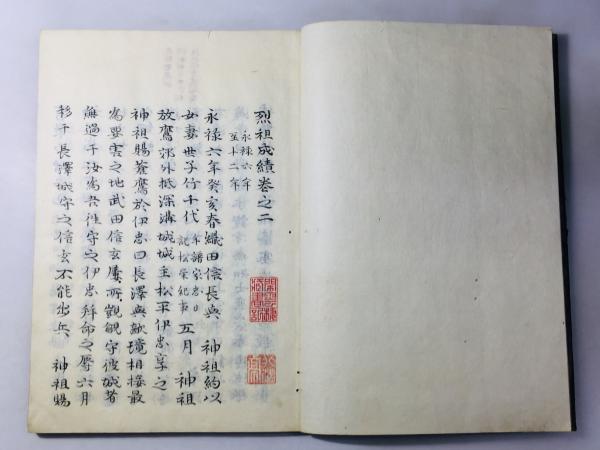 烈祖成績巻之二
永禄六年
至十二年
永禄六年癸亥春織田信長與 神祖約以
女妻世子竹千代 年譜家忠日記松栄紀事 五月 神祖
放鷹郊外抵深溝城城主松平伊忠享之
神祖賜蒼鷹於伊忠曰長澤與敵境相接最
為要害之地武田信玄屢所觀覦守彼城者
無過于汝為吾往守之伊忠拜命之辱六月
移于長澤城守之信玄不能出兵 神祖賜